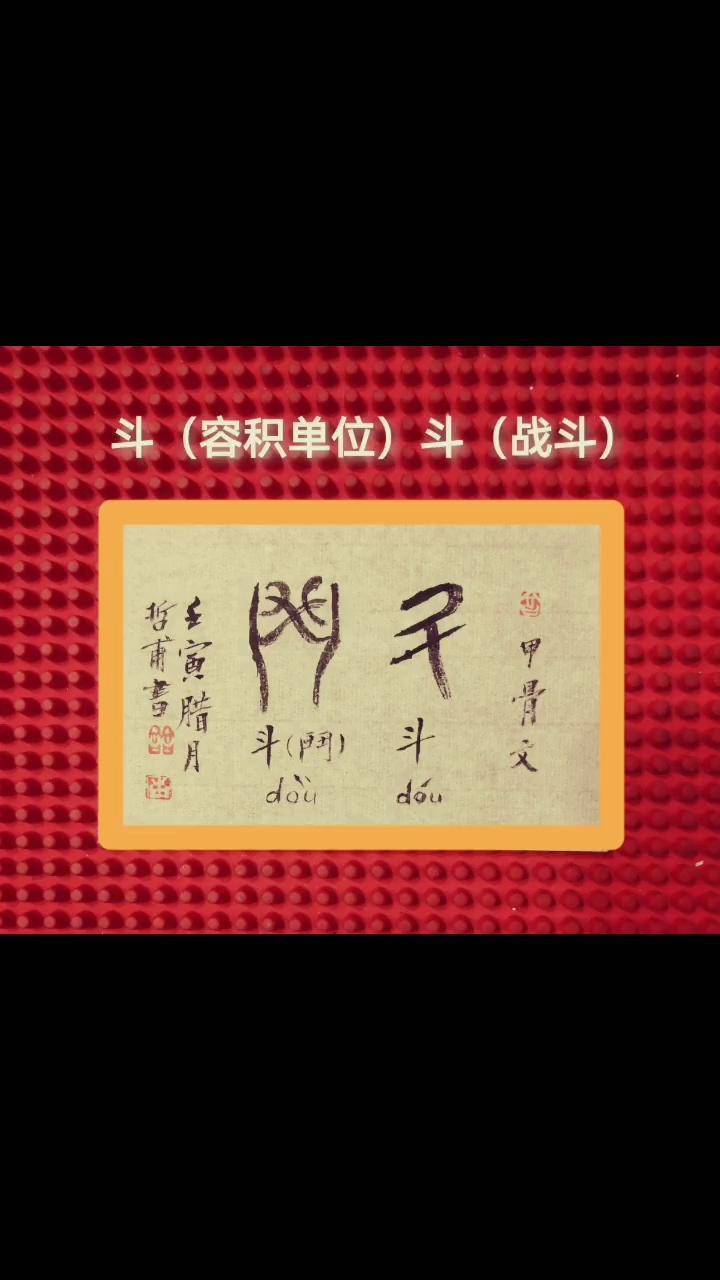 斗（容积单位）斗（战斗）
甲骨文
斗
dóu
斗(鬥)
dòu
壬寅腊月
哲甫書